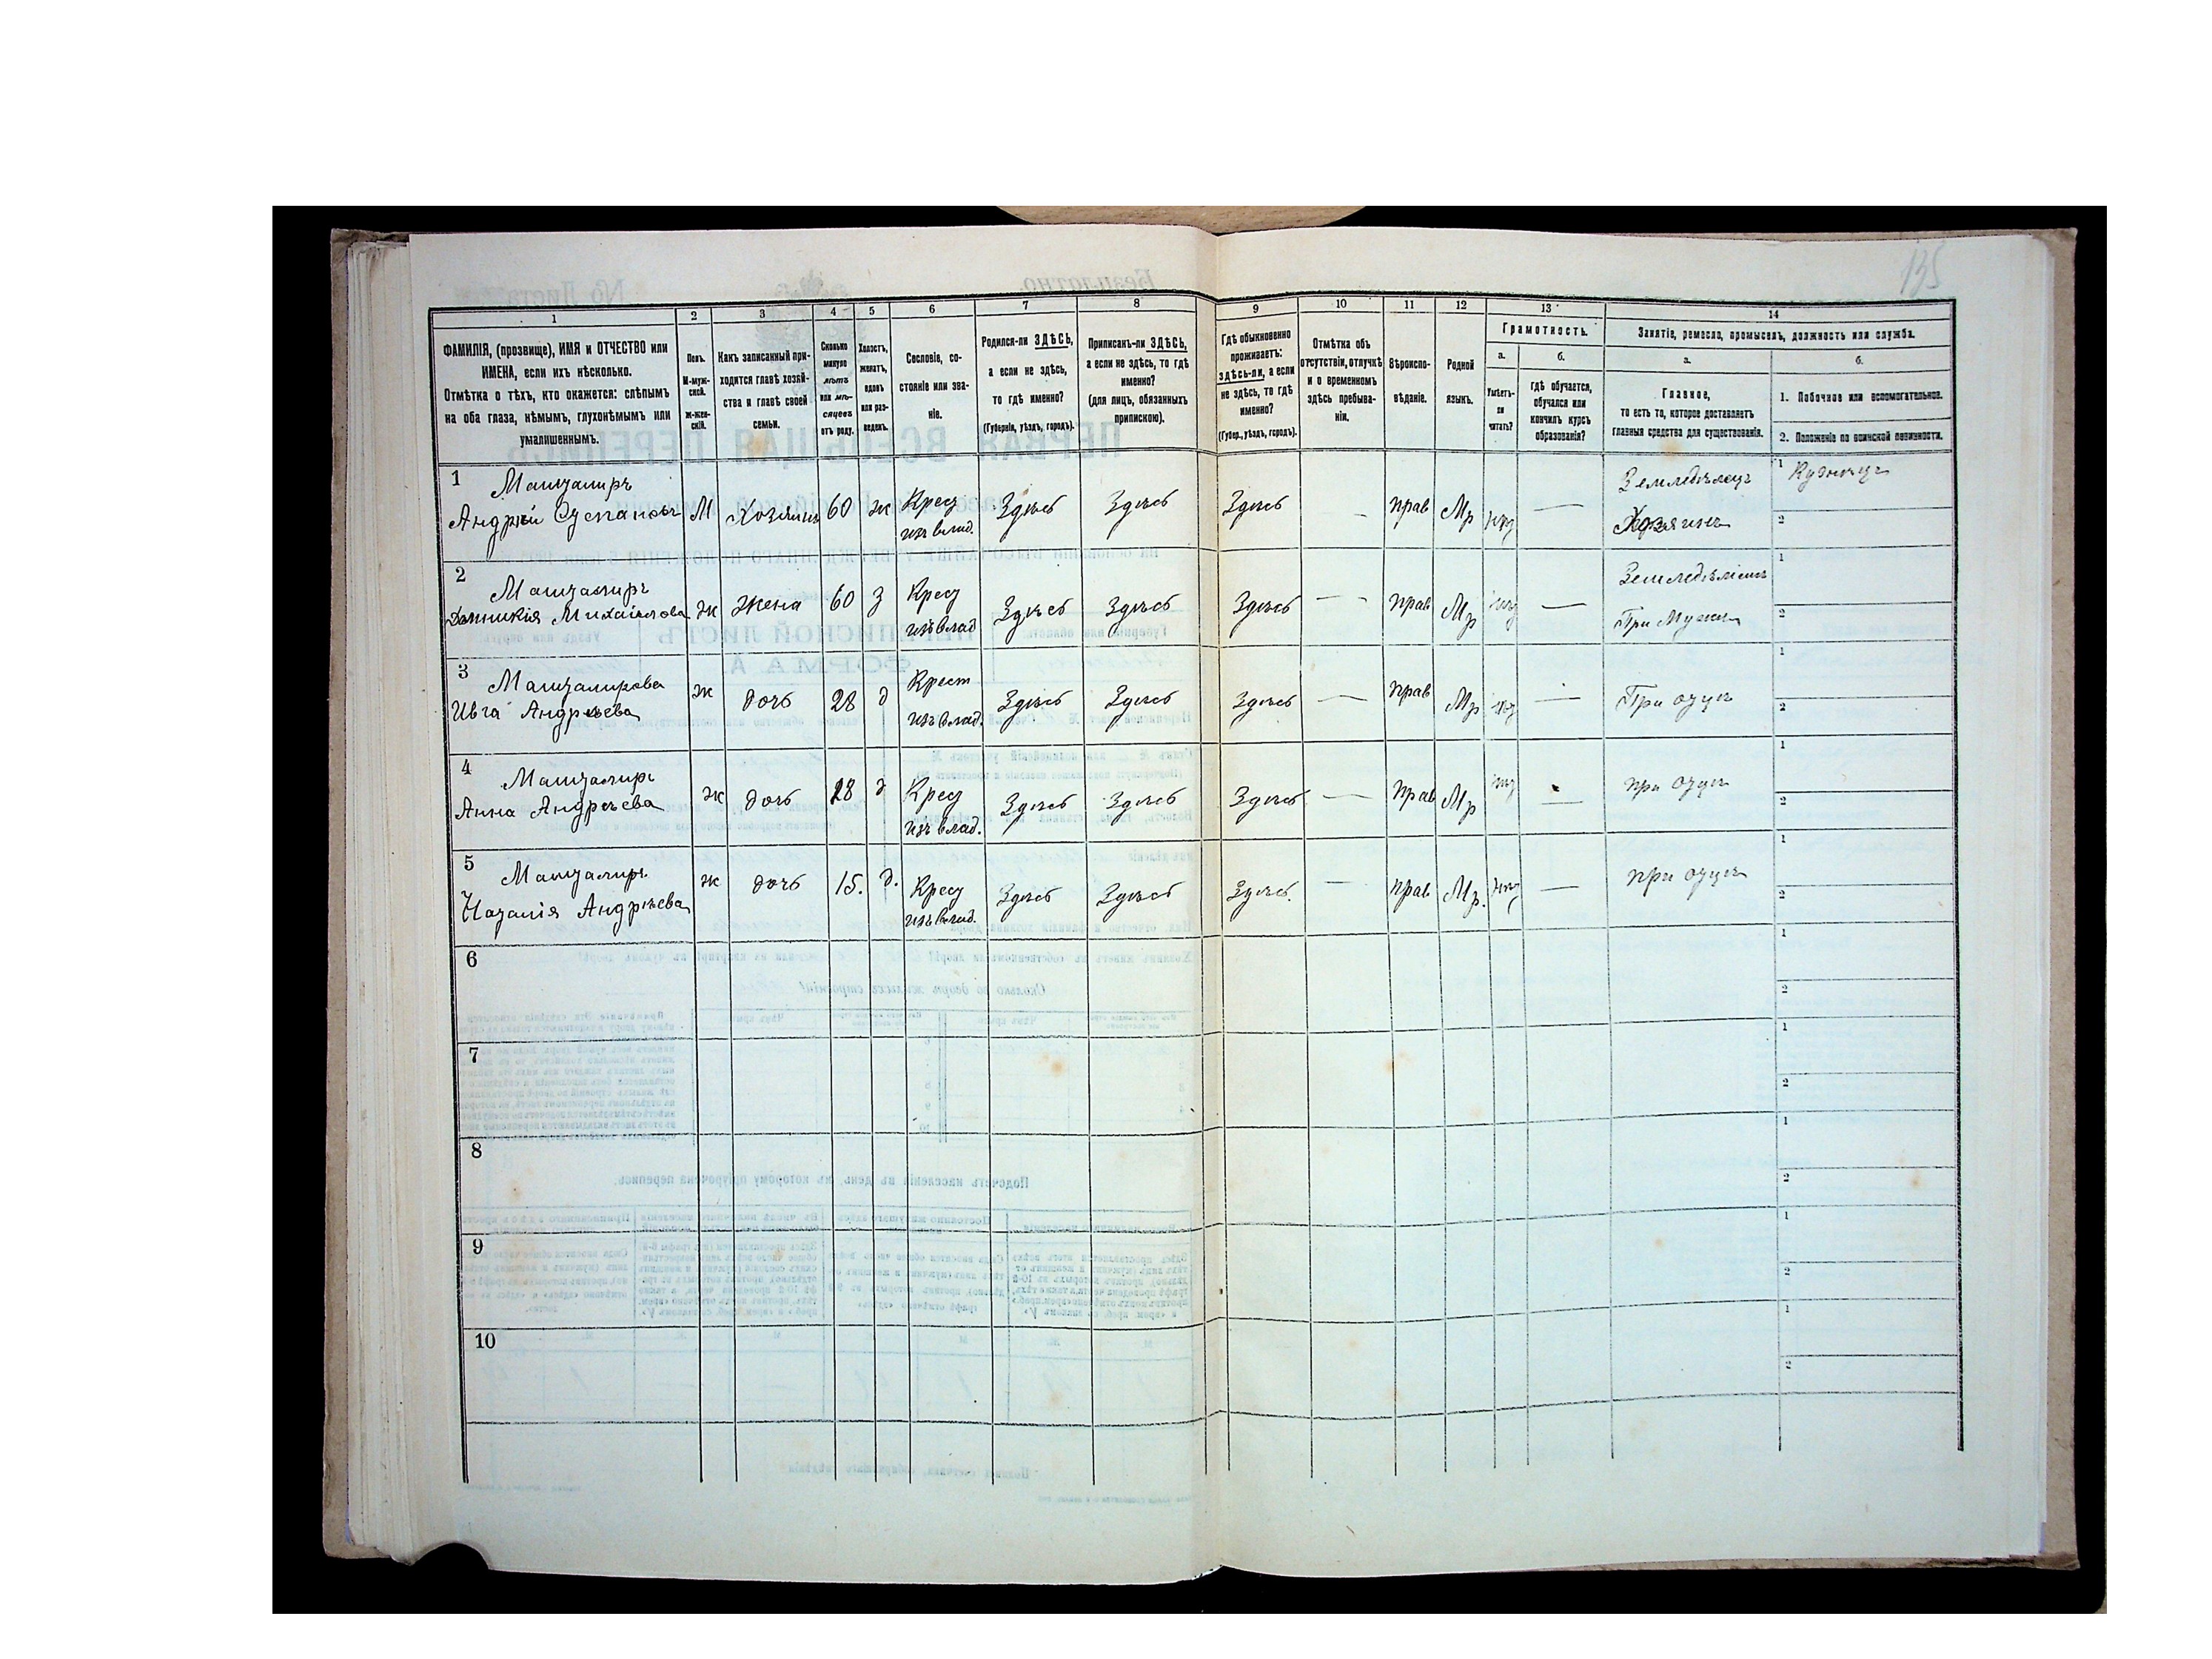 135
1 2 3 4 5 6 7 8 9 10 11 12 13 14
ФАМИЛІЯ, (прозвище), ИМЯ и ОТЧЕСТВО или
ИМЕНА, если ихъ нѣсколько.
Отмѣтка о тѣхъ, кто окажется: слѣпымъ
на оба глаза, нѣмымъ, глухонѣмымъ или
умалишеннымъ.
Полъ.
М-муж-
ской.
ж-жен-
скій.
Какъ записанный при-
ходится главѣ хозяй-
ства и главѣ своей
семьи.
Сколько
минуло
лѣтъ
или мѣ-
сяцевъ
отъ роду.
Холостъ,
женатъ,
вдовъ
или раз-
веденъ.
Сословіе, со-
стояніе или зва-
ніе.
Родился-ли ЗДѢСЬ,
а если не здѣсь,
то гдѣ именно?
(Губернія, уѣздъ, городъ).
Приписанъ-ли ЗДѢСЬ,
а если не здѣсь, то гдѣ
именно?
(для лицъ, обязанныхъ
припискою).
Гдѣ обыкновенно
проживаетъ:
здѣсь-ли, а если
не здѣсь, то гдѣ
именно?
(Губер., уѣздъ, городъ).
Отмѣтка объ
отсутствіи, отлучкѣ
и о временномъ
здѣсь пребыва-
ніи.
Вѣроиспо-
вѣданіе.
Родной
языкъ.
Грамотность.
а.
Умѣетъ-
ли
читать?
б.
гдѣ обучается,
обучался или
кончилъ курсъ
образованія?
Занятіе, ремесло, промыселъ, должность или служба.
а.
Главное,
то есть то, которое доставляетъ
главныя средства для существованія.
б.
1. Побочное или вспомогательное.
2. Положеніе по воинской повинности.
1
Андрѣй Степановъ М Хозяинъ 60 ж Крест Здѣсь Здѣсь Здѣсь — прав Мр нѣт — Земледѣлецъ 1 Кузнецъ
изъ влад. Хозяинъ 2
2
Михайлова ж жена 60 з Крест Здѣсь Здѣсь Здѣсь — прав Мр нѣт — 1
изъ влад При Мужѣ 2
3
Ивга Андрѣева ж дочь 28 д Крест Здѣсь Здѣсь Здѣсь — прав Мр нѣт — При отцѣ 1
изъ влад. 2
4
Анна Андрѣева ж дочь 28 д Крест Здѣсь Здѣсь Здѣсь — прав Мр нѣт — при отцѣ 1
изъ влад. 2
5
Наталія Андрѣева ж дочь 15. д. Крест Здѣсь Здѣсь Здѣсь. — прав Мр. нѣт — при отцѣ 1
изъ влад. 2
6 1
2
7 1
2
8 1
2
9 1
2
10 1
2